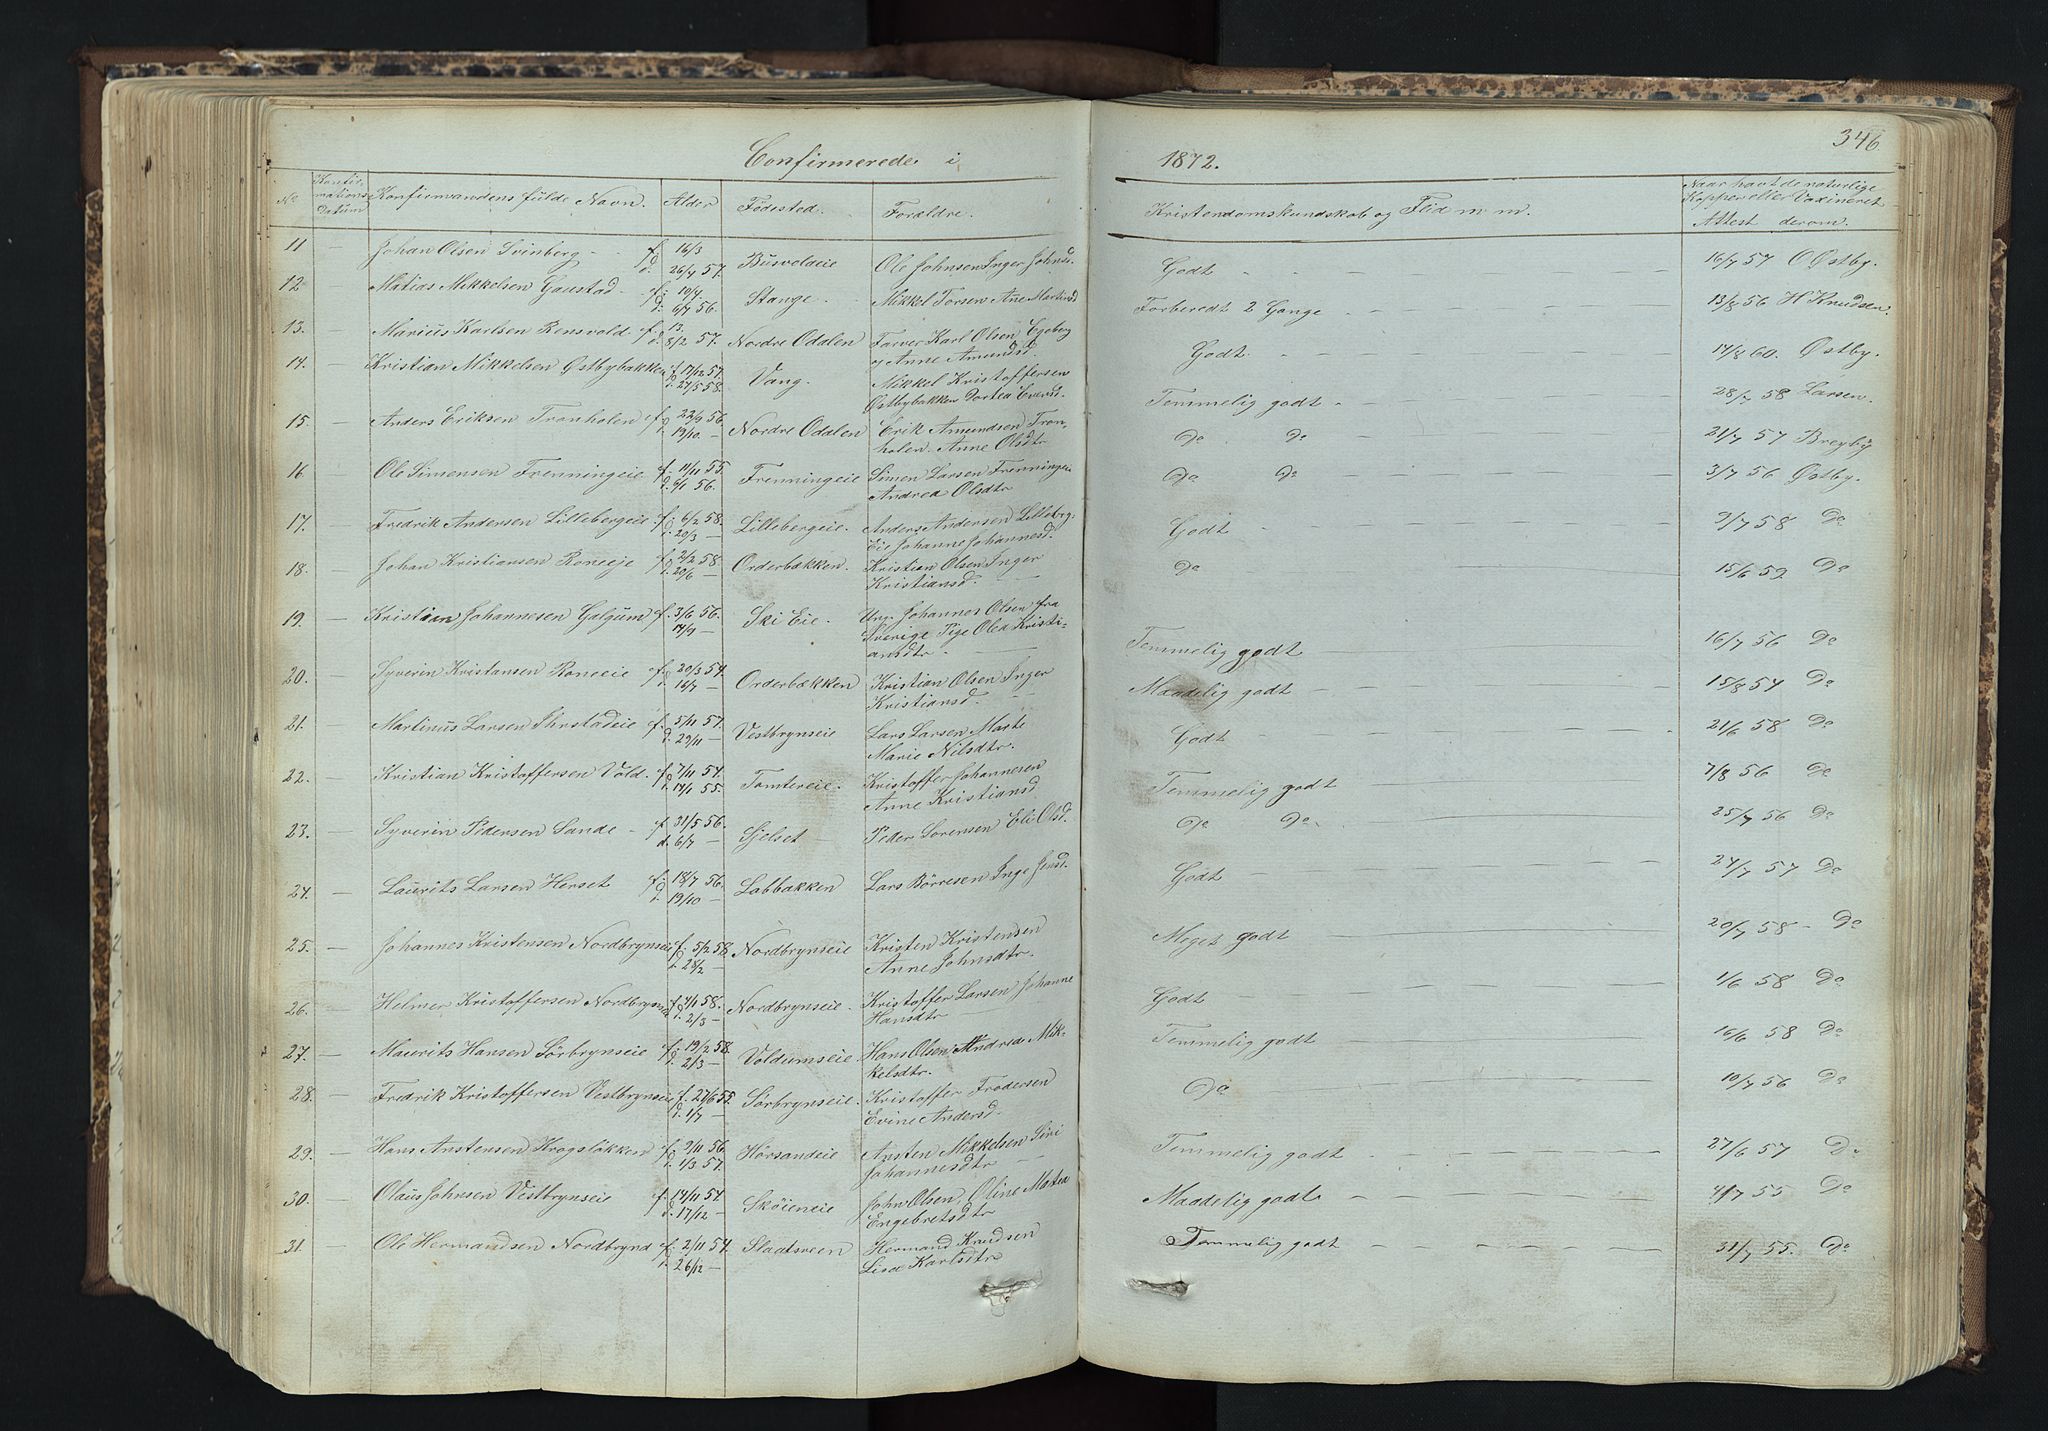 Confirmerede i 1872. 346
No Konfir- Konfirmandens fulde Navn. Alder Födested. Forældre. Kristendomskundskab og Flid m m. Naar havt de naturlige
mations Kopper eller Vaxineret
Datum Attest derom.
11 — Johan Olsen Svinberg - f. 16/3 Busvoldeie Ole Johnsen Inger Johnsd. Godt 16/7 57 O Østby.
d. 26/4 57.
12 — Matias Mikkelsen Gaustad f. 19/4 Stange. Mikkel Torsen Ane Martinsd Forberedt 2 Gange 13/8 56 H Knudsen.
d. 6/7 56.
13. — Marius Karlsen Rensvold f. 13. Nordre Odalen Farver Karl Olsen Egeberg Godt. 14/8 60. Østby.
d. 8/2 57. og Anne Amundsd.
14. — Kristian Mikkelsen Østbybakken f. 17/12 57. Vang. Mikkel Kristoffersen Temmelig godt 28/7 58 Larsen.
d. 24/5 58. Østbybakken Dortea Evensd.
15. — Anders Eriksen Tronholen f. 22/9 56. Nordre Odalen Erik Amundsen Tron- Do Do 21/7 57 Breyby
d. 19/10. — holen. Anne Olsdtr
16 — Ole Simensen Frenningeie f. 11/11 55. Frenningeie Simen Larsen Frenningei Do Do 3/7 56 Østby.
d. 6/1 56. Andrea Olsdtr
17. — Fredrik Andersen Lillebergeie f. 6/2 58. Lillebergeie. Anders Andersen Lilleberg- Godt 9/7 58 Do
d. 20/3 — Eie Johanne Johannesd.
18. — Johan Kristiansen Roneeje f. 2/2 58. Orderbækken. Kristian Olsen Inger Do 15/6 59 Do
d. 20/6 — Kristiansd.
19. — Kristian Johannesen Galgum f. 3/6 56. Ski Eie. Ung. Johannes Olsen fra Temmelig godt 16/7 56 Do
14/9 — Sverige Pige Olea Kristi-
ansdtr.
20. — Syverin Kristansen Roneeie f. 20/3 54. Orderbækken Kristian Olsen Inger Maadelig godt 15/8 54 Do
d. 16/7 — Kristiansd.
21. — Martinus Larsen f. 5/11 57. Vestbrynseie Lars Larsen Marte Godt 21/6 58 Do
d. 29/11 — Marie Nilsdtr.
22. — Kristian Kristoffersen Vold. f. 7/11 54. Tomtereie. Kristoffer Johannesen Temmelig godt 7/8 56 Do
d. 14/1 55. Anne Kristiansd
23. — Syverin Pedersen Sande f. 31/5 56. Sjelset Peder Sorensen Eli Olsd. Do Do 25/7 56 Do
d. 6/7 —
24. — Laurits Larsen Herset f. 18/7 56. Labbakken Lars Börresen Inge Jensd. Godt 24/7 57 Do
d. 19/10 —
25. — Johannes Kristensen Nordbrynseie f. 5/2 58. Nordbrynseie Kristen Kristensen Meget godt 20/7 58 Do
d. 28/2 — Anne Johnsdtr.
26. — Helmer Kristoffersen Nordbrynseie f. 4/1 58. Nordbrynseie. Kristoffer Larsen Johanne Godt 1/6 58 Do
d. 2/3 — Hansdtr
27. — Maurits Hansen Sörbrynseie f. 19/2 58. Voldumseie Hans Olsen Andrea Mik- Temmelig godt 16/6 58 Do
d. 2/3 — kelsdtr.
28. — Fredrik Kristoffersen Vestbrynseie f. 27/6 55. Sörbrynseie. Kristoffer Frodersen Do 10/7 56 Do
d. 1/7 — Evine Andersd.
29. — Hans Anstensen Krogslökken f. 9/11 56. Horsandeie Ansten Mikkelsen Siri Temmelig godt 27/6 57 Do
d. 1/3 57. Johannesdtr
30. — Olaus Johnsen Vestbrynseie f. 14/11 54. Sköieneie John Olsen, Oline Matea Maadelig godt 4/7 55 Do
d. 17/12 — Engebretsdtr
31. — Ole Hermandsen Nordbrynd f. 2/11 54. Sladsveen Hermand Knudsen Temmelig godt 31/7 55. Do
d. 26/12 — Lisa Karlsdtr